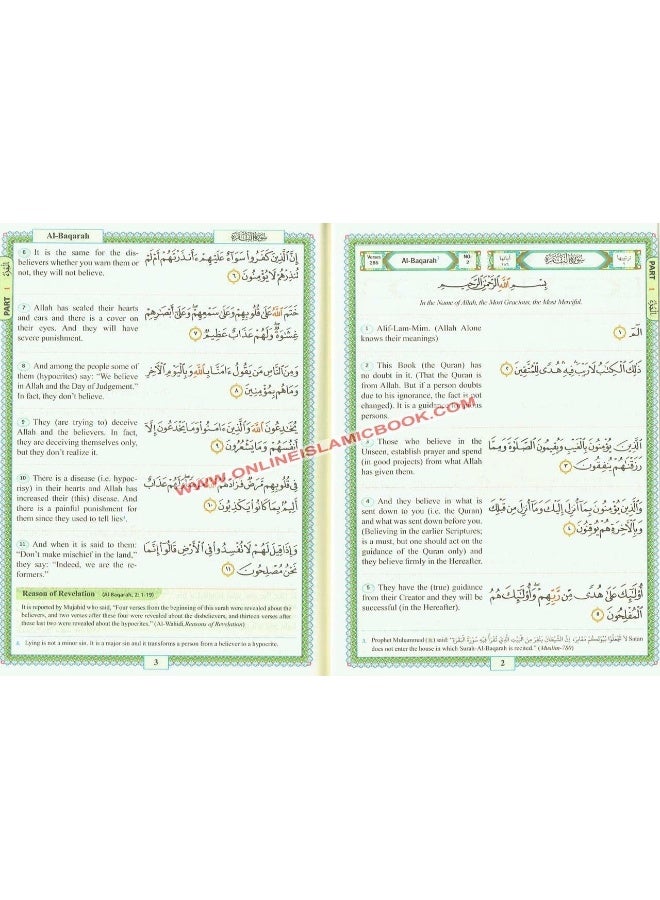 Verses
286
Al-Baqarah¹
NO.
2
آياتها
سورة البقرة
ترتيبها
PART 1
بِسْمِ اللَّهِ الرَّحْمَٰنِ الرَّحِيمِ
In the Name of Allah, the Most Gracious, the Most Merciful.
1 Alif-Lam-Mim. (Allah Alone
knows their meanings)
الٓمٓ ١
2 This Book (the Quran) has
no doubt in it. (That the Quran is
from Allah. But if a person doubts
due to his ignorance, the fact is not
changed). It is a guidance
persons.
ذَٰلِكَ ٱلْكِتَٰبُ لَا رَيْبَ ۛ فِيهِ ۛ هُدًى لِّلْمُتَّقِينَ ٢
3 Those who believe in the
Unseen, establish prayer and spend
(in good projects) from what Allah
has given them.
ٱلَّذِينَ يُؤْمِنُونَ بِٱلْغَيْبِ وَيُقِيمُونَ ٱلصَّلَوٰةَ وَمِمَّا
رَزَقْنَٰهُمْ يُنفِقُونَ ٣
4 And they believe in what is
sent down to you (i.e. the Quran)
and what was sent down before you.
(Believing in the earlier Scriptures;
is a must, but one should act on the
guidance of the Quran only) and
they believe firmly in the Hereafter.
وَٱلَّذِينَ يُؤْمِنُونَ بِمَآ أُنزِلَ إِلَيْكَ وَمَآ أُنزِلَ مِن قَبْلِكَ
وَبِٱلْءَاخِرَةِ هُمْ يُوقِنُونَ ٤
5 They have the (true) guidance
from their Creator and they will be
successful (in the Hereafter).
أُو۟لَٰٓئِكَ عَلَىٰ هُدًى مِّن رَّبِّهِمْ ۖ وَأُو۟لَٰٓئِكَ هُمُ
ٱلْمُفْلِحُونَ ٥
Prophet Muhammad said: "لَا تَجْعَلُوا بُيُوتَكُمْ مَقَابِرَ، إِنَّ الشَّيْطَانَ يَنْفِرُ مِنَ الْبَيْتِ الَّذِي تُقْرَأُ فِيهِ سُورَةُ الْبَقَرَةِ Satan
does not enter the house in which Surah-Al-Baqarah is recited." (Muslim-780)
2
Al-Baqarah
سورة البقرة
PART 1
6 It is the same for the dis-
believers whether you warn them or
not, they will not believe.
إِنَّ ٱلَّذِينَ كَفَرُوا۟ سَوَآءٌ عَلَيْهِمْ ءَأَنذَرْتَهُمْ أَمْ لَمْ
تُنذِرْهُمْ لَا يُؤْمِنُونَ ٦
7 Allah has sealed their hearts
and ears and there is a cover on
their eyes. And they will have
severe punishment.
خَتَمَ ٱللَّهُ عَلَىٰ قُلُوبِهِمْ وَعَلَىٰ سَمْعِهِمْ ۖ وَعَلَىٰٓ أَبْصَٰرِهِمْ
غِشَٰوَةٌ ۖ وَلَهُمْ عَذَابٌ عَظِيمٌ ٧
8 And among the people some of
them (hypocrites) say: "We believe
in Allah and the Day of Judgement."
In fact, they don't believe.
وَمِنَ ٱلنَّاسِ مَن يَقُولُ ءَامَنَّا بِٱللَّهِ وَبِٱلْيَوْمِ ٱلْءَاخِرِ
وَمَا هُم بِمُؤْمِنِينَ ٨
9 They (are trying to) deceive
Allah and the believers. In fact,
they are deceiving themselves only,
but they don't realize it.
يُخَٰدِعُونَ ٱللَّهَ وَٱلَّذِينَ ءَامَنُوا۟ وَمَا يَخْدَعُونَ إِلَّآ
أَنفُسَهُمْ وَمَا يَشْعُرُونَ ٩
10 There is a disease (i.e. hypoc-
risy) in their hearts and Allah has
increased their (this) disease. And
there is a painful punishment for
them since they used to tell lies⁴.
فِى قُلُوبِهِم مَّرَضٌ فَزَادَهُمُ ٱللَّهُ مَرَضًا ۖ وَلَهُمْ عَذَابٌ
أَلِيمٌۢ بِمَا كَانُوا۟ يَكْذِبُونَ ١٠
11 And when it is said to them:
"Don't make mischief in the land,"
they say: "Indeed, we are the re-
formers."
وَإِذَا قِيلَ لَهُمْ لَا تُفْسِدُوا۟ فِى ٱلْأَرْضِ قَالُوٓا۟ إِنَّمَا
نَحْنُ مُصْلِحُونَ ١١
Reason of Revelation (Al Baqarah, 2: 1-19)
It is reported by Mujahid who said, "Four verses from the beginning of this surah were revealed about the
believers, and two verses after these four were revealed about the disbelievers, and thirteen verses after
these last two were revealed about the hypocrites." (Al-Wahidi, Reasons of Revelation)
4. Lying is not a minor sin. It is a major sin and it transforms a person from a believer to a hypocrite.
3
WWW.ONLINEISLAMICBOOK.COM